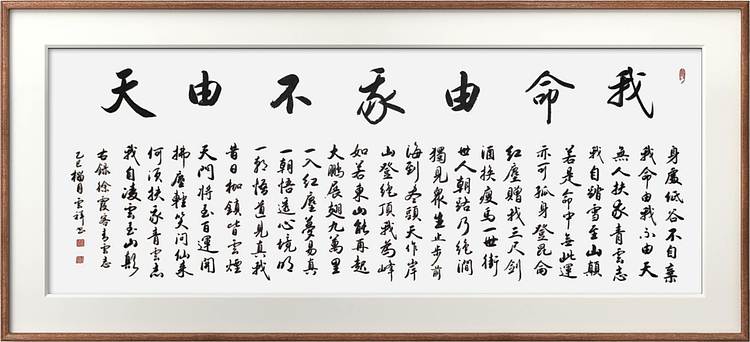 我命由我不由天
身處低谷不自棄
我命由我不由天
無人扶我青雲志
我自踏雪至山巔
若是命中無此運
亦可孤身登昆侖
紅塵贈我三尺劍
酒扶瘦馬一世衝
世人朝路乃絕澗
獨見眾生止步前
海到尽頭天作岸
山登絕頂我為峰
如若東山能再起
大鵬展翅九萬里
一入紅塵夢易真
一朝悟透心境明
一朝悟道見真我
昔日枷鎖皆雲煙
天門將至百運開
拂塵輕笑問仙來
何須扶我青雲志
我自凌雲至山巔
右錄徐霞客青雲志
乙巳榴月雲祥書